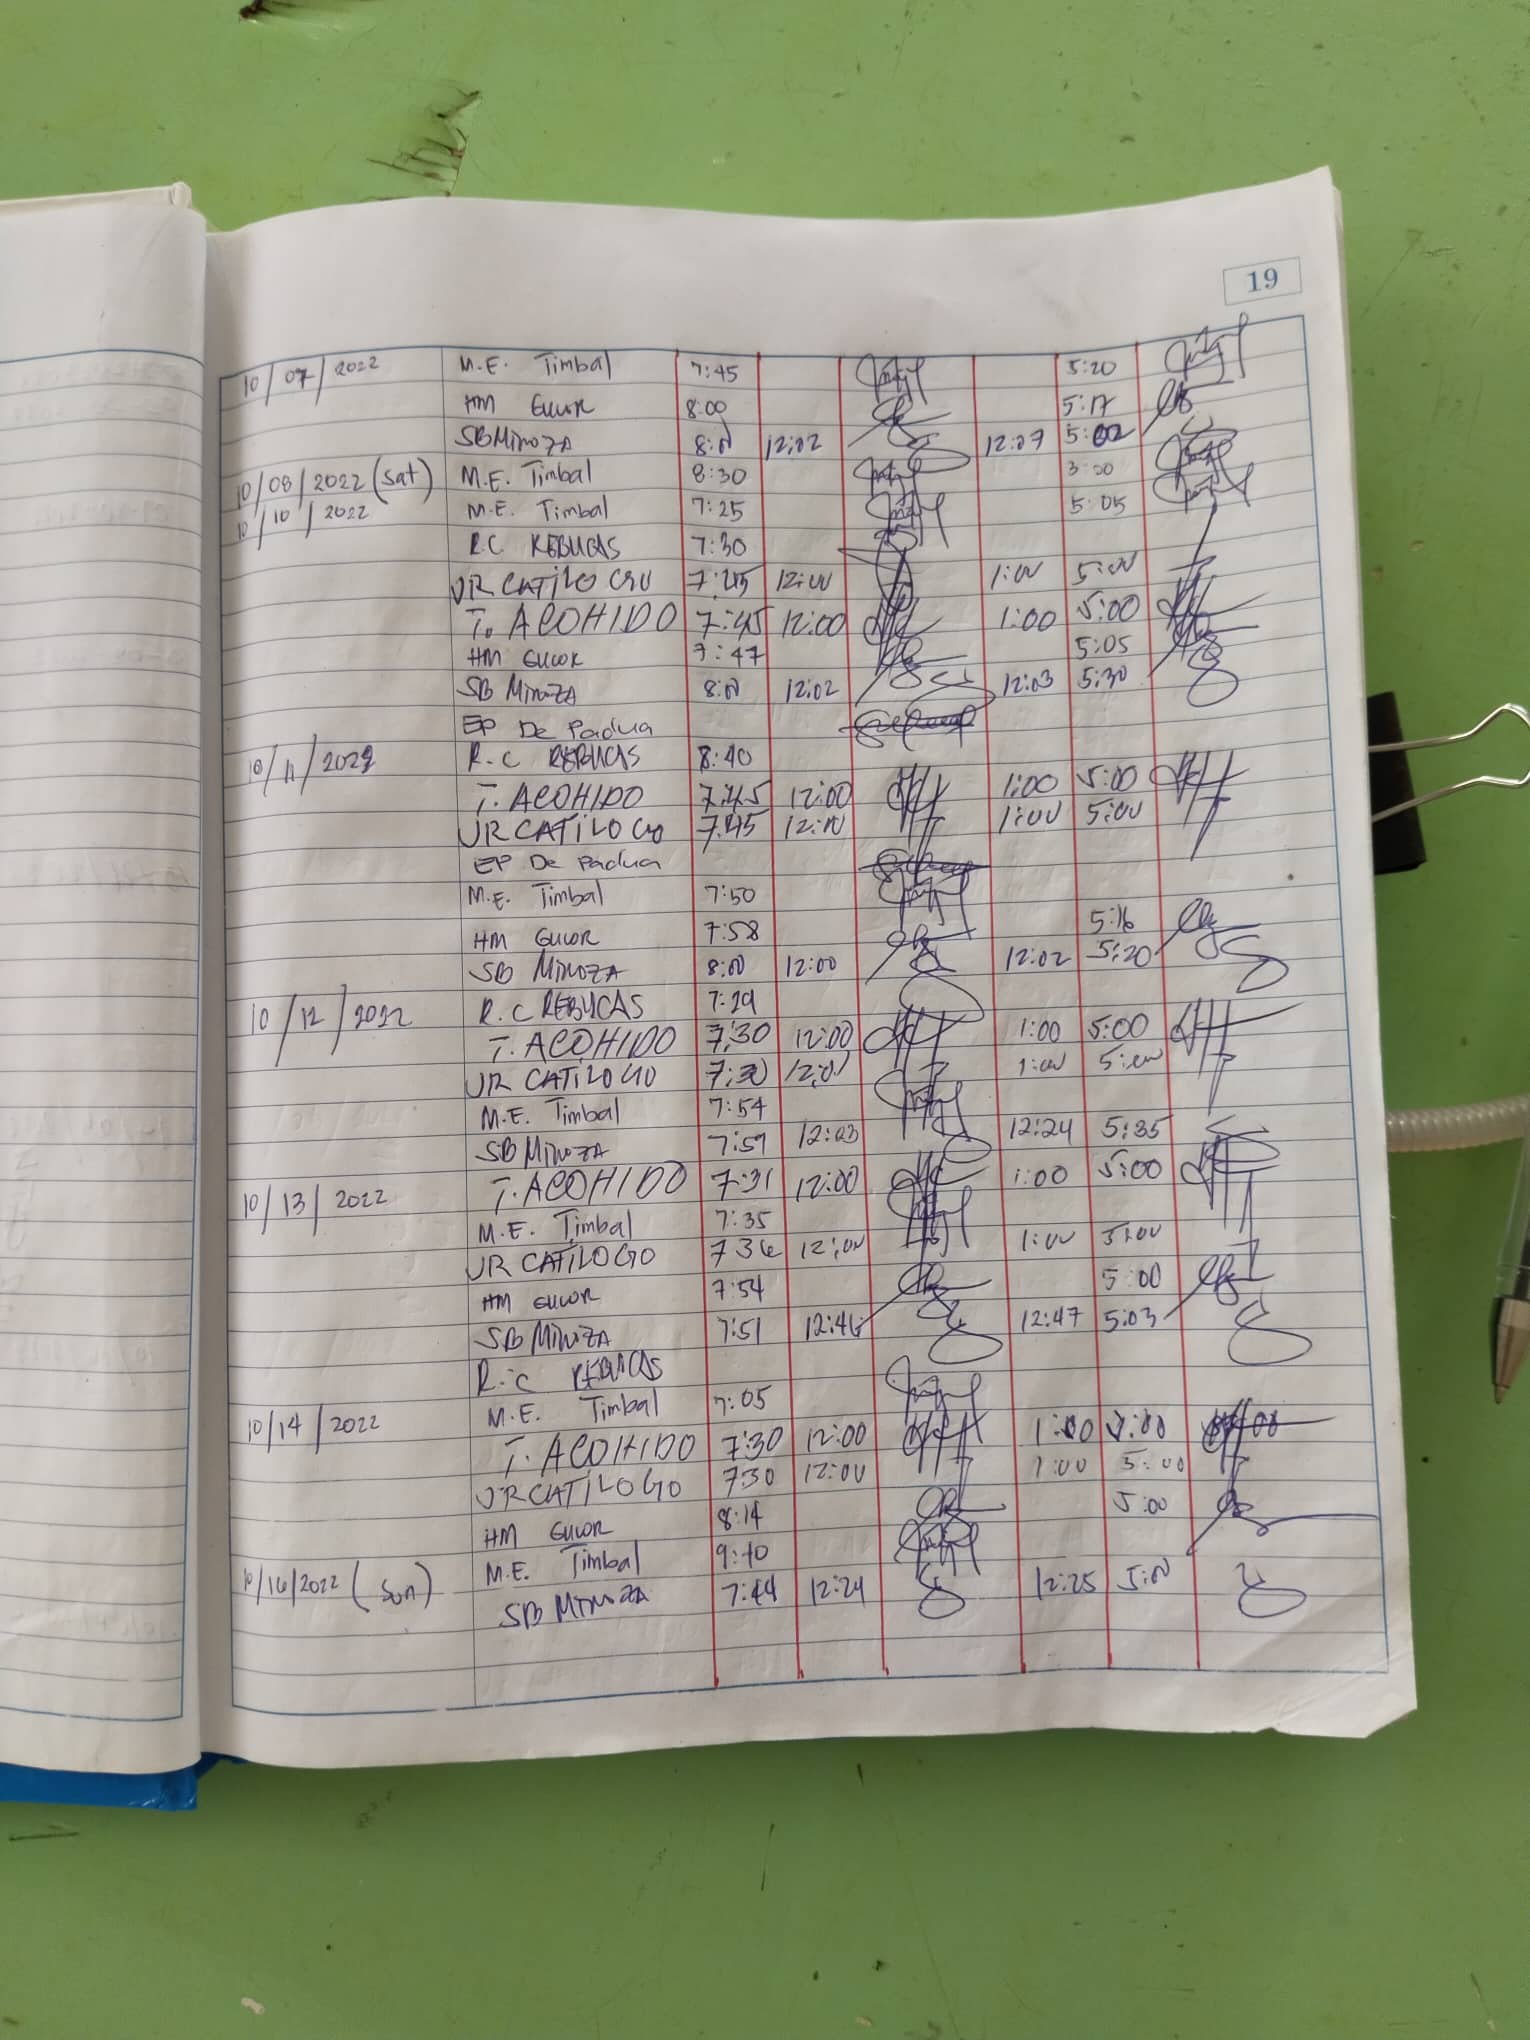 19
10/07/2022 M.E. Timbal 7:45 5:20
HM 8:00 5:17
SB Minoza 8:00 12:02 12:07 5:02
10/08/2022 (Sat) M.E. Timbal 8:30 3:00
10/10/2022 M.E. Timbal 7:25 5:05
R.C REBUCAS 7:30
JR CATILOGO 7:45 12:00 1:00 5:00
T. ACOHIDO 7:45 12:00 1:00 5:00
HM 7:47 5:05
SB Minoza 8:00 12:02 12:03 5:30
EP De Padua
10/11/2022 R.C REBUCAS 8:40
T. ACOHIDO 7:45 12:00 1:00 5:00
JR CATILOGO 7:45 12:00 1:00 5:00
EP De Padua
M.E. Timbal 7:50
HM 7:58 5:16
SB MINOZA 8:00 12:00 12:02 5:20
10/12/2022 R.C REBUCAS 7:29
T. ACOHIDO 7:30 12:00 1:00 5:00
JR CATILOGO 7:30 12:00 1:00 5:00
M.E. Timbal 7:54
SB MINOZA 7:57 12:23 12:24 5:35
10/13/2022 T. ACOHIDO 7:31 12:00 1:00 5:00
M.E. Timbal 7:35
JR CATILOGO 7:36 12:00 1:00 5:00
HM 7:54 5:00
SB MINOZA 7:51 12:46 12:47 5:03
R.C REBUCAS
10/14/2022 M.E. Timbal 7:05
T. ACOHIDO 7:30 12:00 1:00
JR CATILOGO 7:30 12:00 1:00 5:00
HM 8:14 5:00
M.E. Timbal 9:40
10/16/2022 (Sun) SB MINOZA 7:44 12:24 12:25 5:00